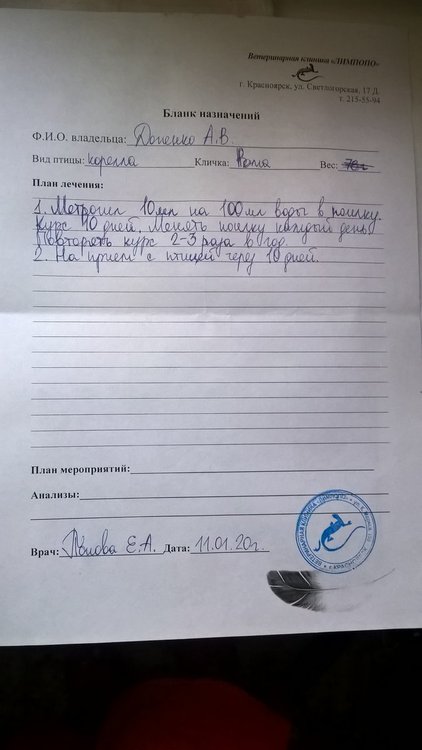 Ветеринарная клиника «ЛИМПОПО»
г. Красноярск, ул. Светлогорская, 17 Д.
т. 215-55-94
Бланк назначений
Ф.И.О. владельца: А.В.
Вид птицы: корелла Кличка: Вес:
План лечения:
1. Метрогил 10мл на 100мл воды в поилку.
Курс 10 дней. Менять поилку каждый день.
Повторять курс 2-3 раза в год.
2. На прием с птицей через 10 дней.
План мероприятий:
Анализы:
Врач: Е.А. Дата: 11.01.20г.
ВЕТЕРИНАРНАЯ КЛИНИКА